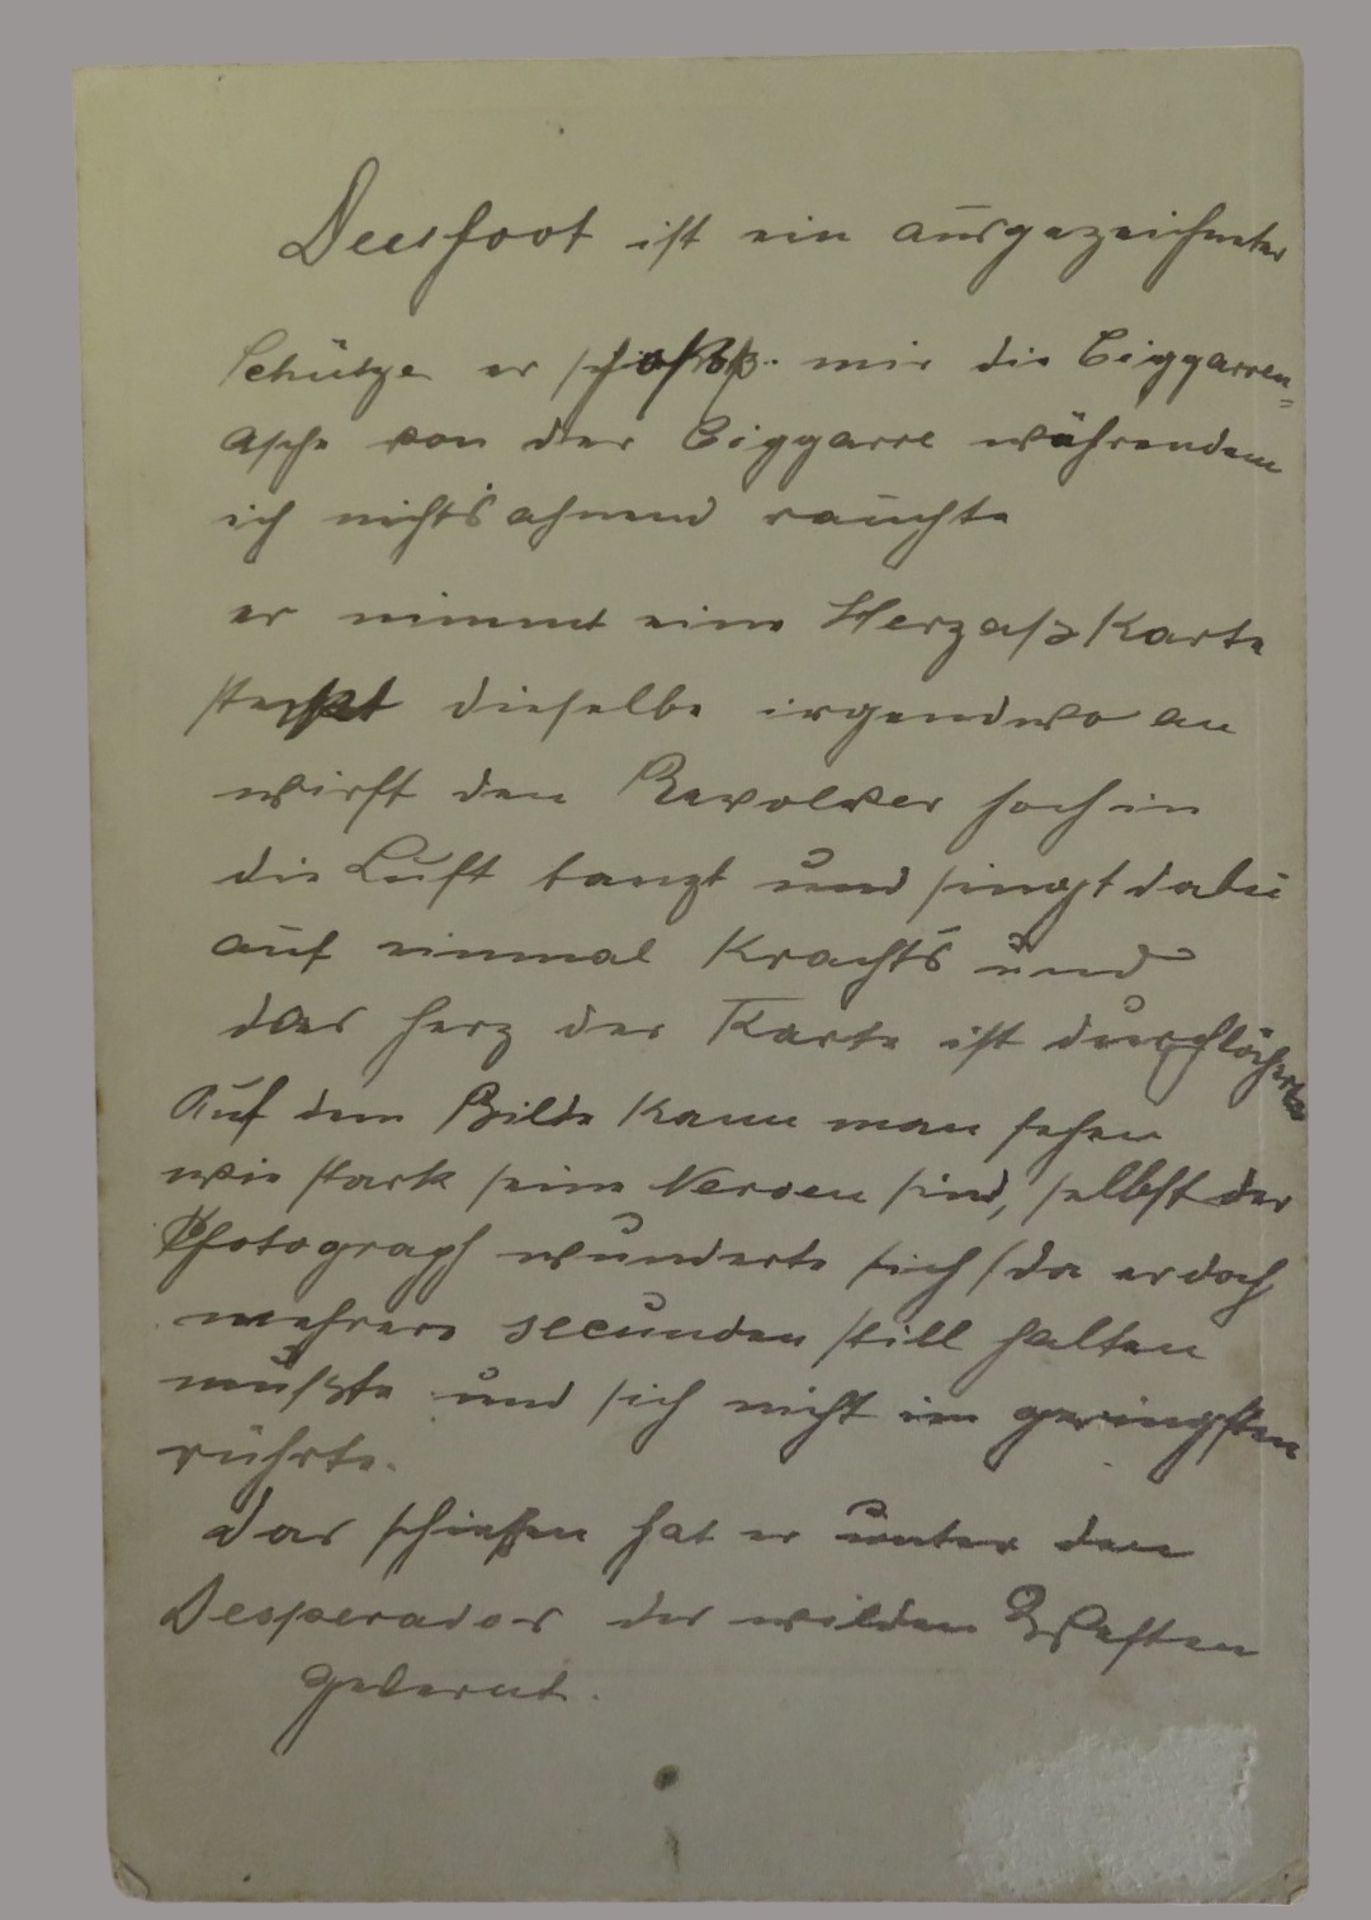 Deerfoot ist ein ausgezeichneter
Schütze er schoß mir die Ciggarren=
asche von der Ciggarre währendem
ich nichts ahnend rauchte
er nimmt eine Herzaß Karte
steckt dieselbe irgendwo an
wirft den Revolver hoch in
die Luft tanzt und singt dabei
auf einmal Krachts und
das Herz der Karte ist durchlöchert
Auf dem Bilde Kann man sehen
wie stark seine Nerven sind, selbst der
Photograph wunderte sich (da er doch
mehrere secunden still halten
mußte und sich nicht im geringsten
rührte.
Das schießen hat er unter den
Desperados des wilden Westen
gelernt.